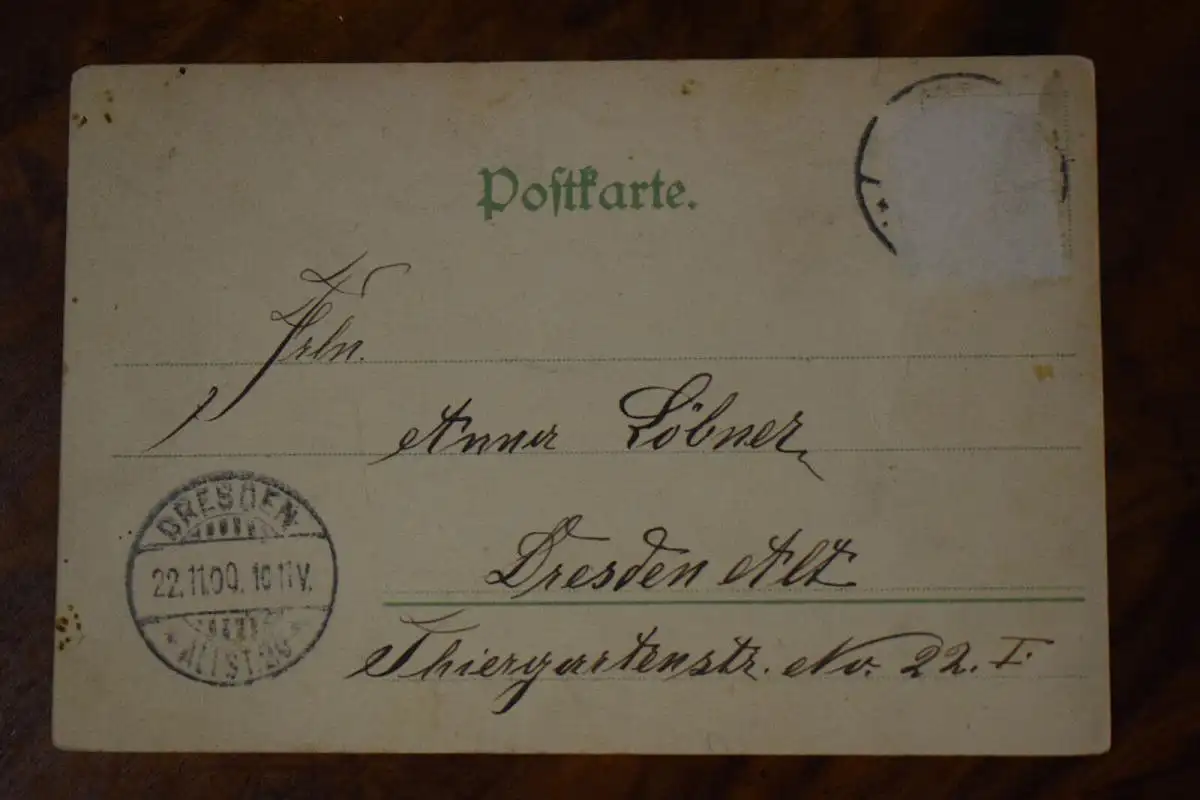 Postkarte.
Frln.
Anna Löbner
Dresden Alt
Thiergartenstr. No. 22. I.
DRESDEN
22.11.00. 10 11 V.
ALTST. 26